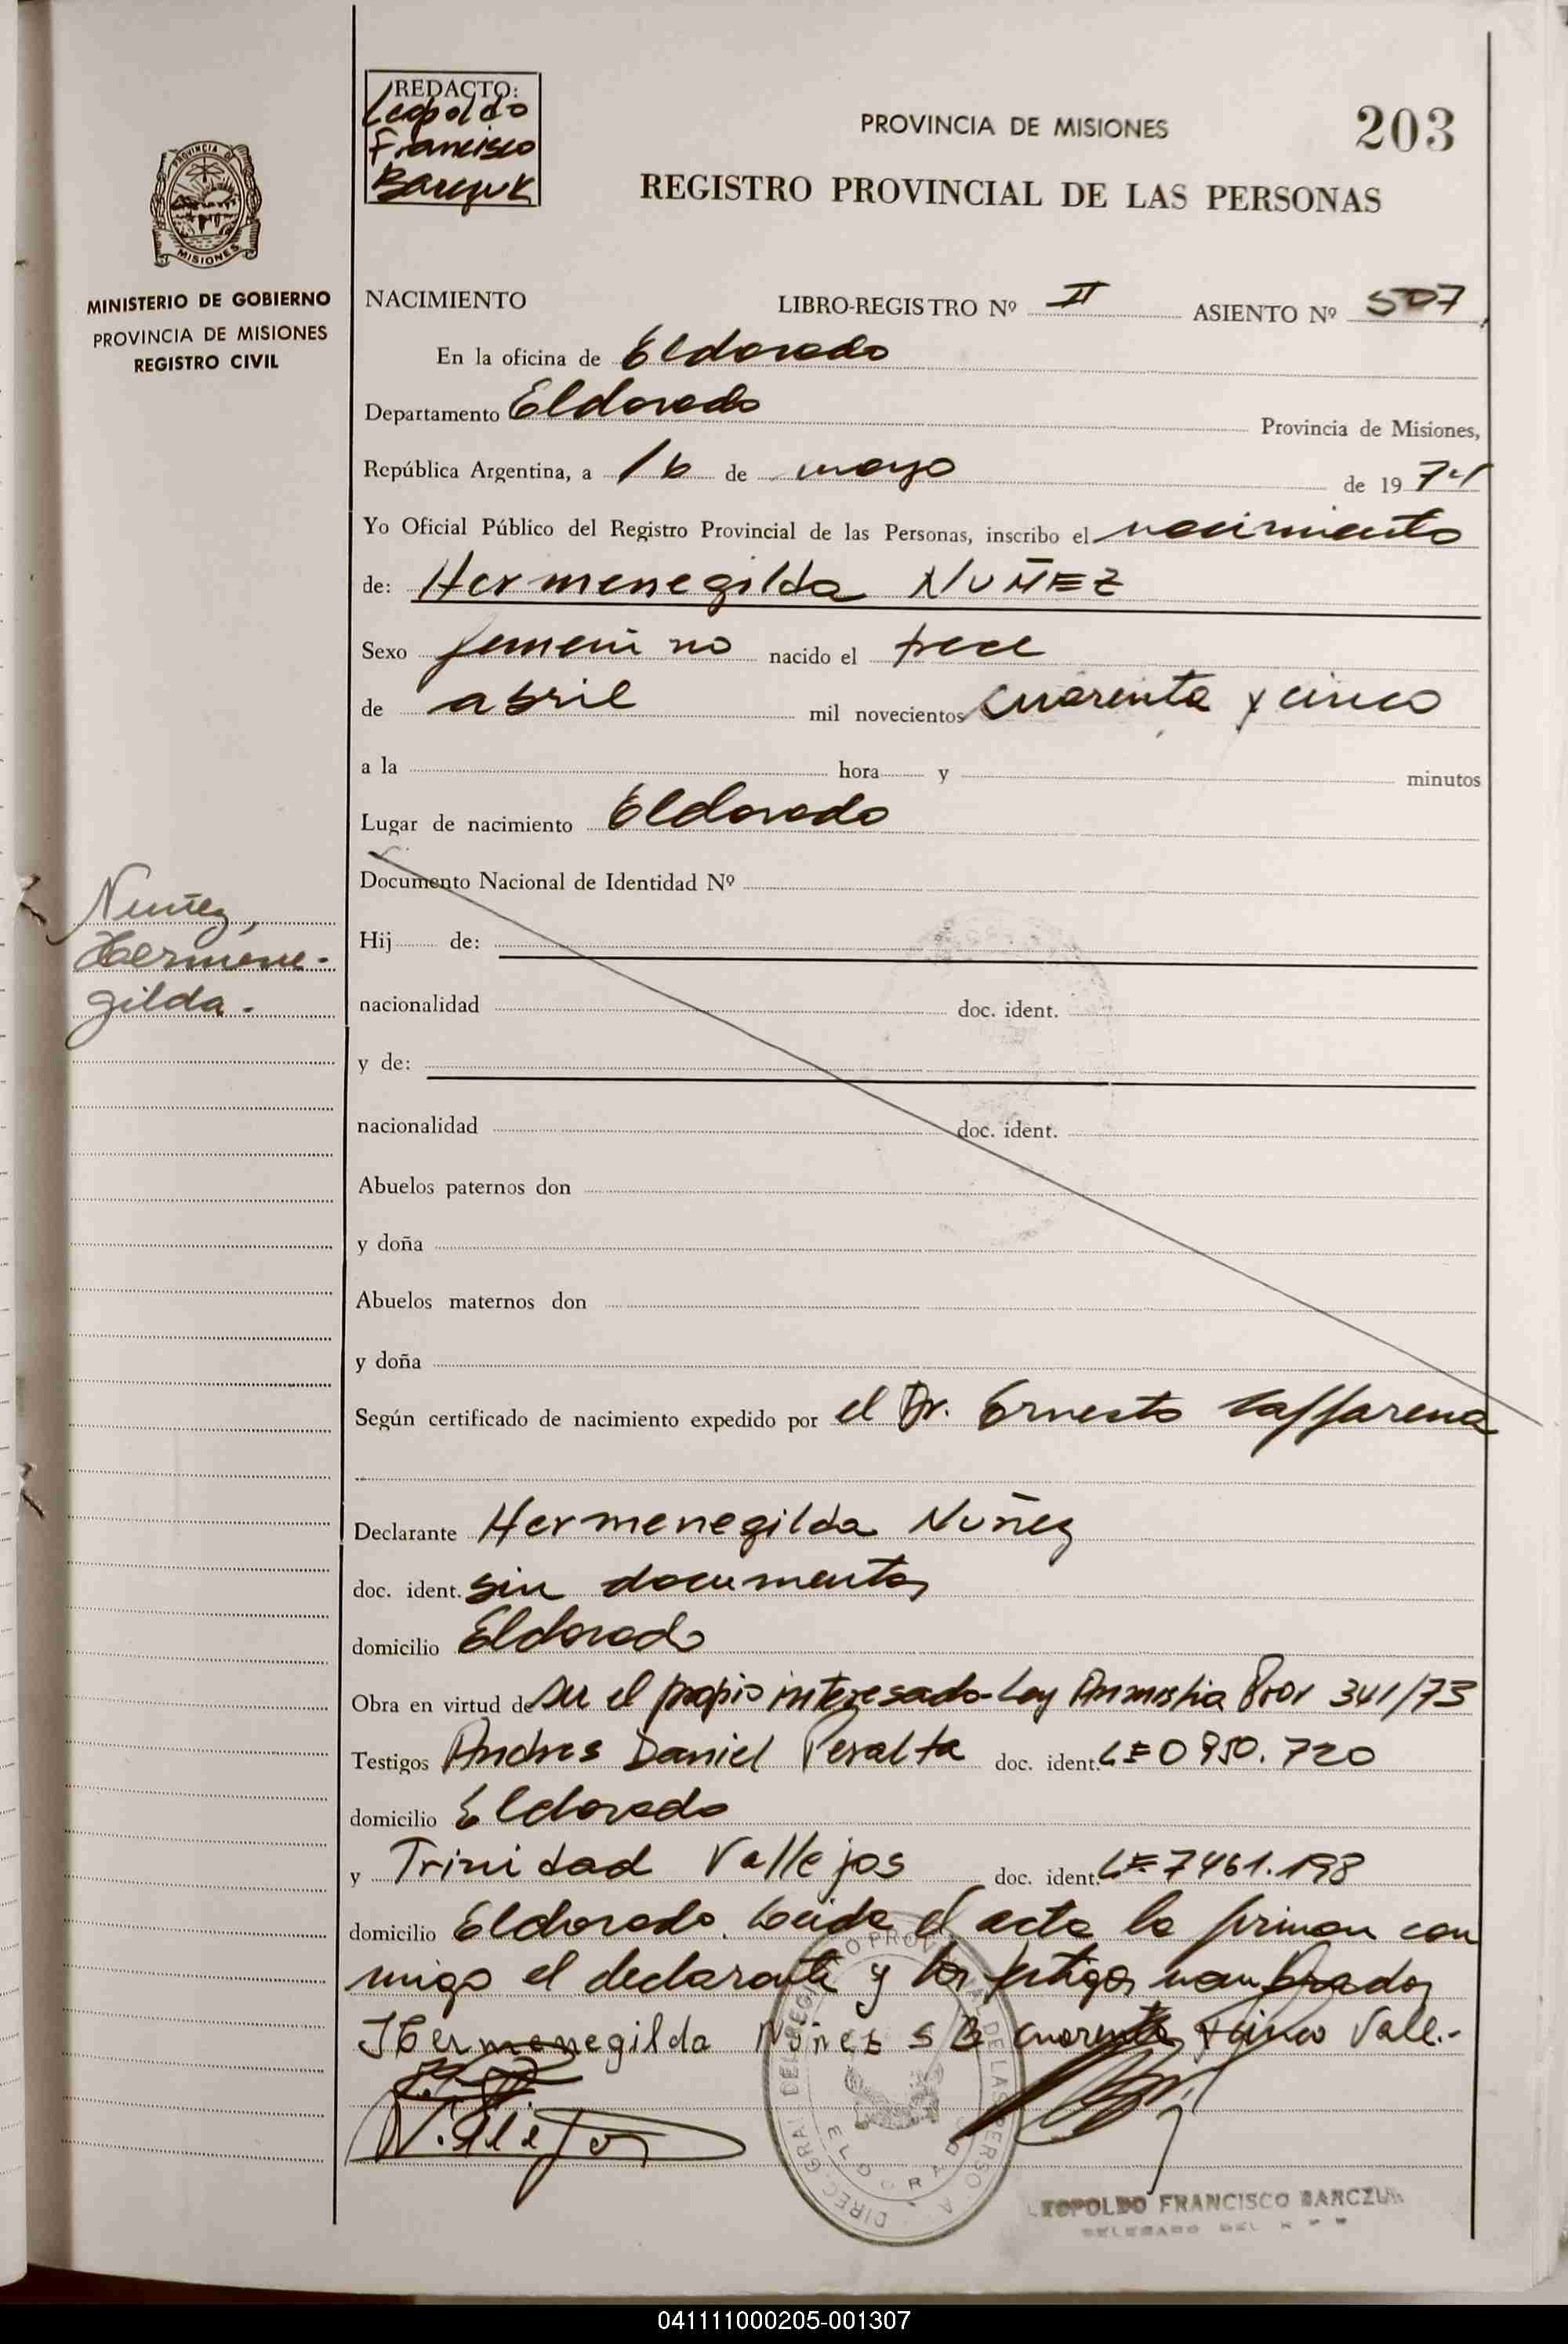 REDACTO:
Leopoldo
Francisco
Barczuk
PROVINCIA DE MISIONES
203
REGISTRO PROVINCIAL DE LAS PERSONAS
PROVINCIA DE
MISIONES
MINISTERIO DE GOBIERNO
PROVINCIA DE MISIONES
REGISTRO CIVIL
NACIMIENTO LIBRO-REGISTRO Nº II ASIENTO Nº 507
En la oficina de Eldorado
Departamento Eldorado Provincia de Misiones,
República Argentina, a 16 de mayo de 19 74
Yo Oficial Público del Registro Provincial de las Personas, inscribo el nacimiento
de: Hermenegilda NUÑEZ
Sexo femenino nacido el trece
de abril mil novecientos cuarenta y cinco
a la hora y minutos
Lugar de nacimiento Eldorado
Documento Nacional de Identidad Nº
Nuñez,
Hermene-
gilda.
Hij de:
nacionalidad doc. ident.
y de:
nacionalidad doc. ident.
Abuelos paternos don
y doña
Abuelos maternos don
y doña
Según certificado de nacimiento expedido por el Dr. Ernesto Zaffarena
Declarante Hermenegilda Nuñez
doc. ident. sin documentos
domicilio Eldorado
Obra en virtud de ser el propio interesado-Ley Amnistia Prov 341/73
Testigos Andres Daniel Peralta doc. ident. LE 0950.720
domicilio Eldorado
y Trinidad Vallejos doc. ident. LE 7461.198
domicilio Eldorado. Leida el acta la firman con
migo el declarante y los testigos nombrados
Hermenegilda Nuñez S B cuarenta y cinco Vale.-
DIREC. GRAL. DEL REGISTRO PROVINCIAL DE LAS PERSONAS
ELDORADO
LEOPOLDO FRANCISCO BARCZUK
DELEGADO DEL
041111000205-001307